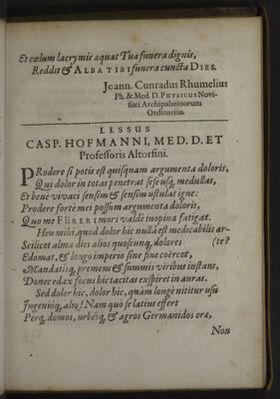 Et cœlum lacrymis æquat Tua funera dignis,
Reddit & ALBA TIBI funera cuncta DIES.
Joann. Cunradus Rhumelius
Ph. & Med. D. PHYSICUS Novi-
fori Archipalatinorum
Ordinarius.
LESSUS
CASP. HOFMANNI, MED. D. ET
Professoris Altorfini.
PRodere si potis est quisquam argumenta doloris,
Qui dolor in totas penetrat sese usq, medullas,
Et bene vivaci sensim & sensim ustulat igne:
Prodere forte mei possum argumenta doloris,
Quo me FÜRERI mors valde inopina fatigat.
Heu mihi, quod dolor hic nulla est medicabilis ar-
Scilicet alma dies alios quoscunq, dolores (te?
Edomat, & longo imperio sine fine coercet,
Mandatisq, premens & summis viribus instans,
Donec edax focus hic tacitas exspiret in auras.
Sed dolor hic, dolor hic, quàm longè nititur usu
Ingenióq, alio! Nam quò se latius effert
Perq, domos, urbésq, & agros Germanidos oræ,
Non